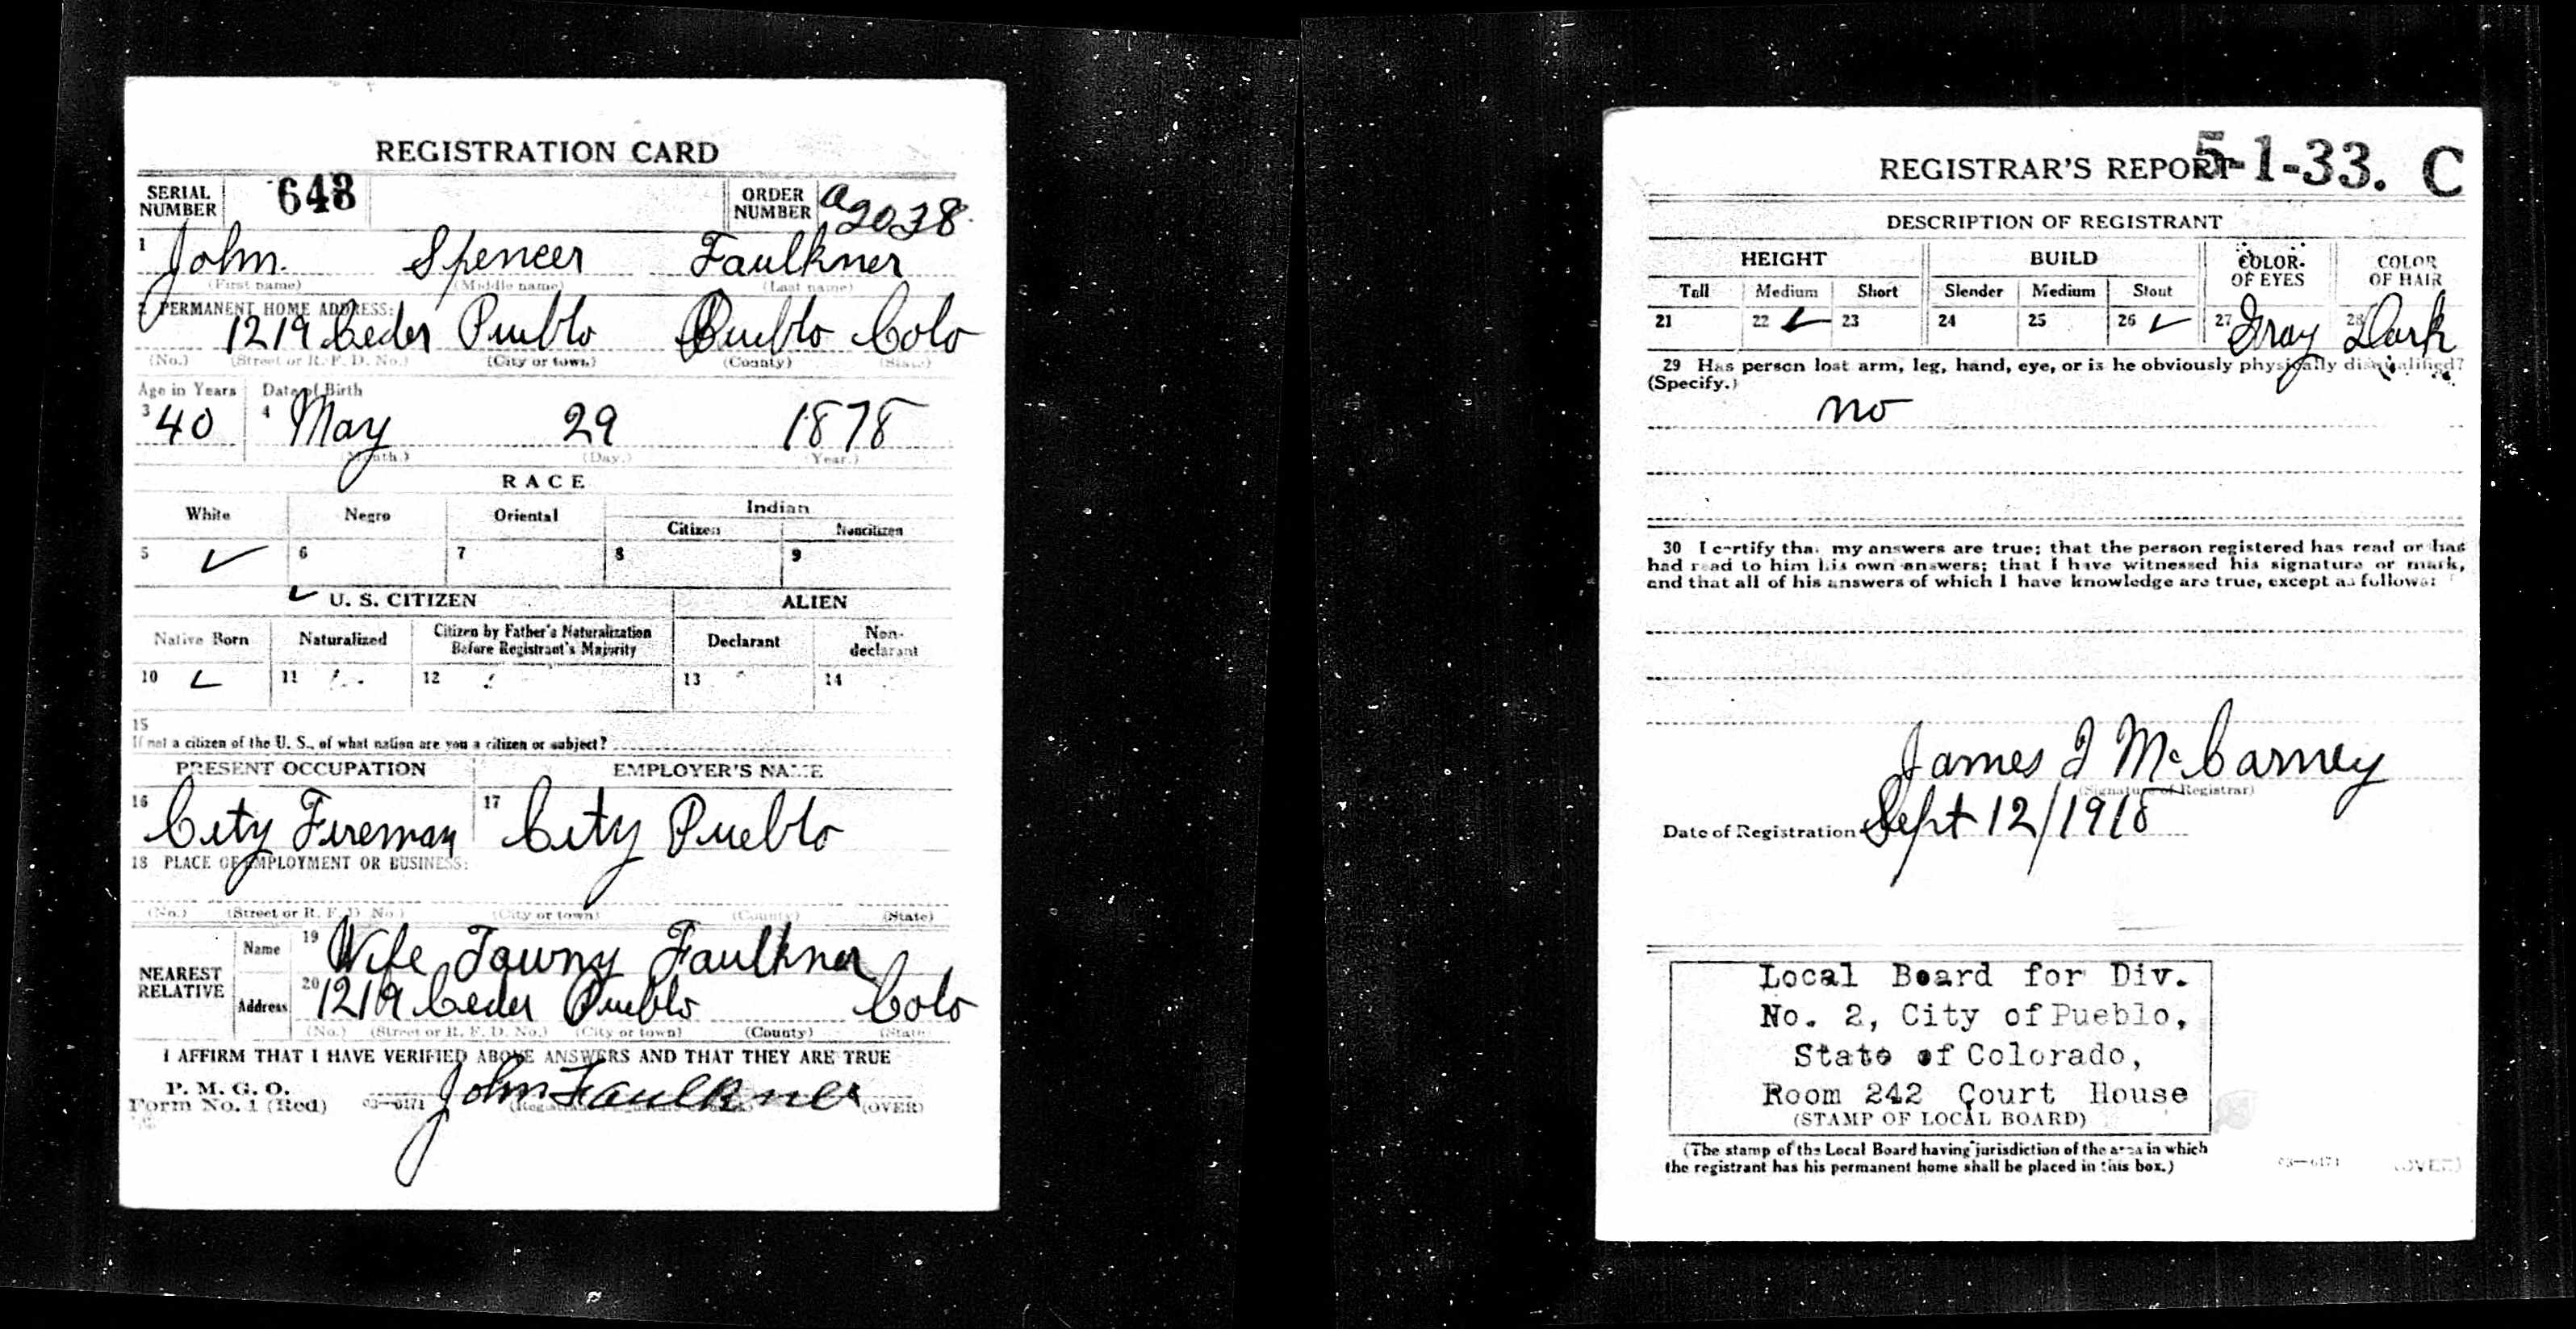 REGISTRATION CARD
SERIAL NUMBER 648 ORDER NUMBER a2038
1 John Spencer Faulkner
(First name) (Middle name) (Last name)
2 PERMANENT HOME ADDRESS:
1219 Ceder Pueblo Pueblo Colo
(No.) (Street or R. F. D. No.) (City or town) (County) (State)
Age in Years Date of Birth
3 40 4 May 29 1878
(Month.) (Day.) (Year.)
RACE
White Negro Oriental Indian
Citizen Noncitizen
5 ✓ 6 7 8 9
✓ U. S. CITIZEN ALIEN
Native Born Naturalized Citizen by Father's Naturalization Before Registrant's Majority Declarant Non-declarant
10 ✓ 11 12 13 14
15
If not a citizen of the U. S., of what nation are you a citizen or subject?
PRESENT OCCUPATION EMPLOYER'S NAME
16 City Fireman 17 City Pueblo
18 PLACE OF EMPLOYMENT OR BUSINESS:
(No.) (Street or R. F. D. No.) (City or town) (County) (State)
NEAREST RELATIVE
Name 19 Wife Faulkner
Address 20 1219 Ceder Pueblo Colo
(No.) (Street or R. F. D. No.) (City or town) (County) (State)
I AFFIRM THAT I HAVE VERIFIED ABOVE ANSWERS AND THAT THEY ARE TRUE
P. M. G. O.
Form No. 1 (Red) 03—6171 John Faulkner (OVER)
REGISTRAR'S REPORT 5-1-33. C
DESCRIPTION OF REGISTRANT
HEIGHT BUILD COLOR OF EYES COLOR OF HAIR
Tall Medium Short Slender Medium Stout
21 22 ✓ 23 24 25 26 ✓ 27 Gray 28 Dark
29 Has person lost arm, leg, hand, eye, or is he obviously physically disqualified?
(Specify.)
no
30 I certify that my answers are true; that the person registered has read or has
had read to him his own answers; that I have witnessed his signature or mark,
and that all of his answers of which I have knowledge are true, except as follows:
James J McCarney
(Signature of Registrar)
Date of Registration Sept 12/1918
Local Board for Div.
No. 2, City of Pueblo,
State of Colorado,
Room 242 Court House
(STAMP OF LOCAL BOARD)
(The stamp of the Local Board having jurisdiction of the area in which
the registrant has his permanent home shall be placed in this box.)
03—6171 (OVER)